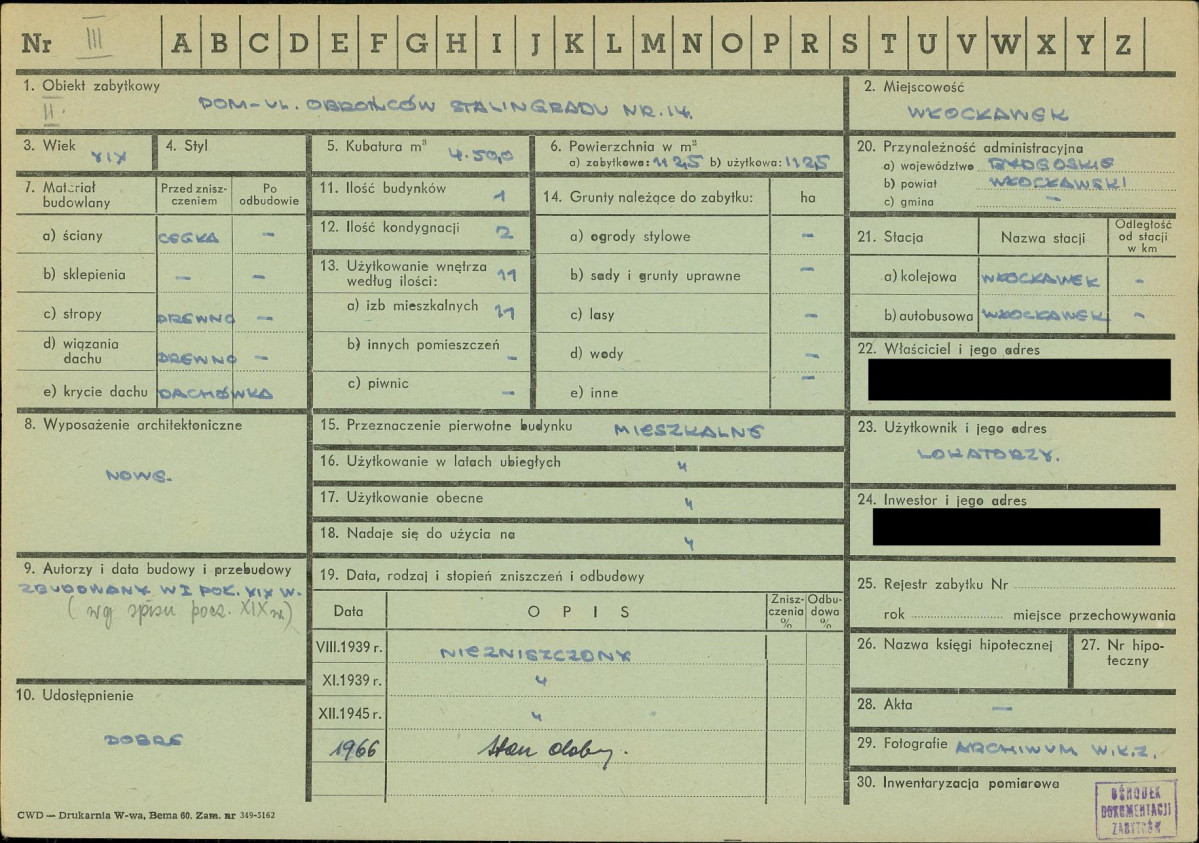 Nr III A B C D E F G H I J K L M N O P R S T U V W X Y Z
1. Obiekt zabytkowy
II.
DOM-UL. OBROŃCÓW STALINGRADU NR. 14.
2. Miejscowość
WŁOCŁAWEK
3. Wiek XIX
4. Styl
5. Kubatura m³ 4.500
6. Powierzchnia w m²
a) zabytkowa: 1125 b) użytkowa: 1125
20. Przynależność administracyjna
a) województwo BYDGOSKIE
b) powiat WŁOCŁAWSKI
c) gmina —
7. Materiał budowlany
Przed zniszczeniem
Po odbudowie
a) ściany CEGŁA —
b) sklepienia — —
c) stropy DREWNO —
d) wiązania dachu DREWNO —
e) krycie dachu DACHÓWKA
11. Ilość budynków 1
12. Ilość kondygnacji 2
13. Użytkowanie wnętrza według ilości: 11
a) izb mieszkalnych 11
b) innych pomieszczeń —
c) piwnic —
14. Grunty należące do zabytku: ha
a) ogrody stylowe —
b) sady i grunty uprawne —
c) lasy —
d) wody —
e) inne —
21. Stacja
Nazwa stacji
Odległość od stacji w km
a) kolejowa WŁOCŁAWEK -
b) autobusowa WŁOCŁAWEK -
22. Właściciel i jego adres
8. Wyposażenie architektoniczne
NOWE.
15. Przeznaczenie pierwotne budynku MIESZKALNE
16. Użytkowanie w latach ubiegłych "
17. Użytkowanie obecne "
18. Nadaje się do użycia na "
23. Użytkownik i jego adres
LOKATORZY.
24. Inwestor i jego adres
9. Autorzy i data budowy i przebudowy
ZBUDOWANY W I POŁ. XIX W.
(wg spisu pocz. XIX w.)
19. Data, rodzaj i stopień zniszczeń i odbudowy
Data
OPIS
Zniszczenia %
Odbudowa %
VIII.1939 r. NIEZNISZCZONY
XI.1939 r. "
XII.1945 r. "
1966 Stan dobry.
25. Rejestr zabytku Nr
rok miejsce przechowywania
26. Nazwa księgi hipotecznej
27. Nr hipoteczny
10. Udostępnienie
DOBRE
28. Akta —
29. Fotografie ARCHIWUM W.K.Z.
30. Inwentaryzacja pomiarowa
OŚRODEK
DOKUMENTACJI
ZABYTKÓW
CWD — Drukarnia W-wa, Bema 60. Zam. nr 349-5162